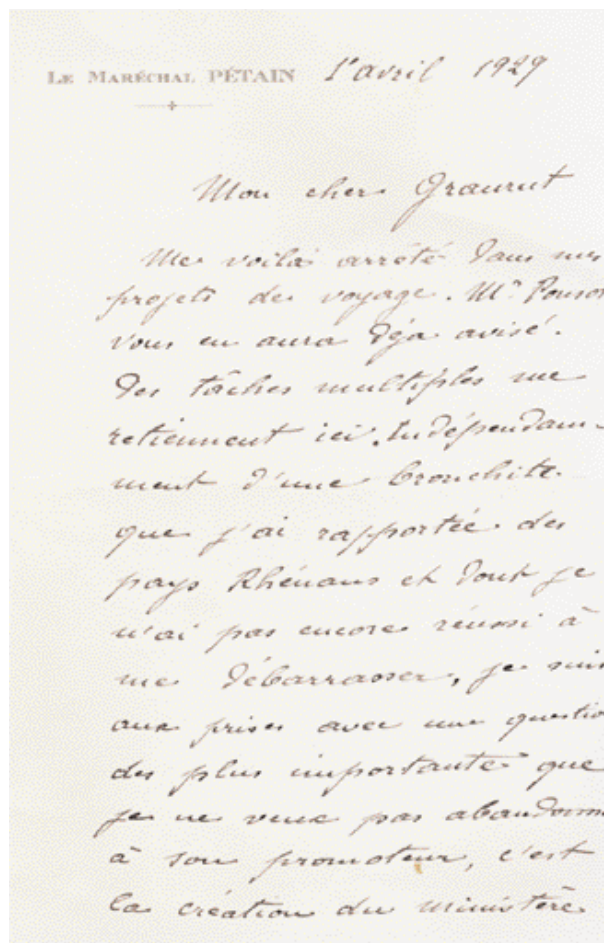 LE MARÉCHAL PÉTAIN 1er avril 1929
Mon cher Graurut
Me voilà arrêté dans mes
projets de voyage. Mr Ponso
vous en aura déja avisé.
Des tâches multiples me
retiennent ici. Indépendam-
ment d'une bronchite
que j'ai rapportée des
pays Rhénans et dont je
n'ai pas encore réussi à
me débarrasser, je suis
aux prises avec une questio
des plus importante que
je ne veux pas abandonn
à son promoteur, c'est
la création du ministère